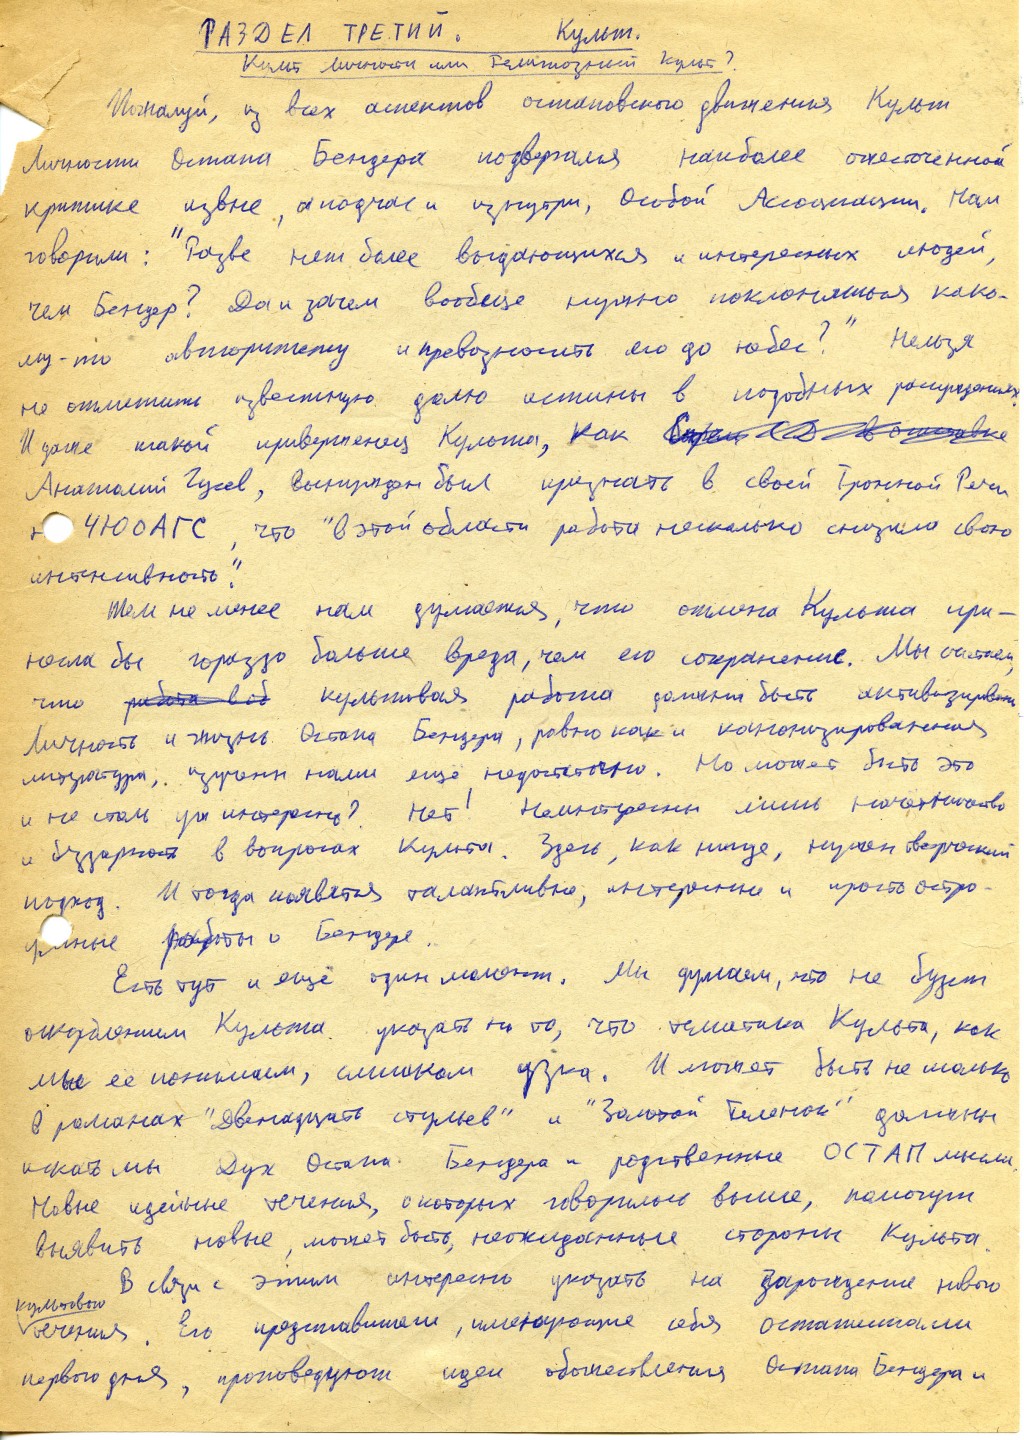 РАЗДЕЛ ТРЕТИЙ. Культ.
Культ Личности или Религиозный Культ?
Пожалуй, из всех аспектов остаповского движения Культ
Личности Остапа Бендера подвергался наиболее ожесточенной
критике извне, а подчас и изнутри, Особой Ассоциации. Нам
говорили: "Разве нет более выдающихся и интересных людей,
чем Бендер? Да и зачем вообще нужно поклоняться како-
му-то авторитету и превозносить его до небес?" Нельзя
не отметить известную долю истины в подобных рассуждениях.
И даже такой приверженец Культа, как
Анатолий Гусев, вынужден был признать в своей Тронной Речи
н ЧЮОАГС, что "в этой области работа несколько снизила свою
интенсивность".
Тем не менее нам думается, что отмена Культа при-
несла бы гораздо больше вреда, чем его сохранение. Мы считаем,
что работа в об культовая работа должна быть активизирована
Личность и жизнь Остапа Бендера, равно как и канонизированная
литература, изучены нами ещё недостаточно. Но может быть это
и не столь уж интересно? Нет! Неинтересны лишь начетничество
и бездарность в вопросах Культа. Здесь, как нигде, нужен творческий
подход. И тогда появятся талантливые, интересные и просто остро-
умные работы о Бендере.
Есть тут и ещё один момент. Мы думаем, что не будет
оскорблением Культа указать на то, что тематика Культа, как
мы ее понимаем, слишком узка. И может быть не только
в романах "Двенадцать стульев" и "Золотой Теленок" должны
искать мы Дух Остапа Бендера и родственные ОСТАПмысли.
Новые идейные течения, о которых говорилось выше, помогут
выявить новые, может быть, неожиданные стороны Культа.
В связи с этим интересно указать на зарождение нового
культового
течения. Его представители, именующие себя остапистами
первого дня, проповедуют идеи обожествления Остапа Бендера и